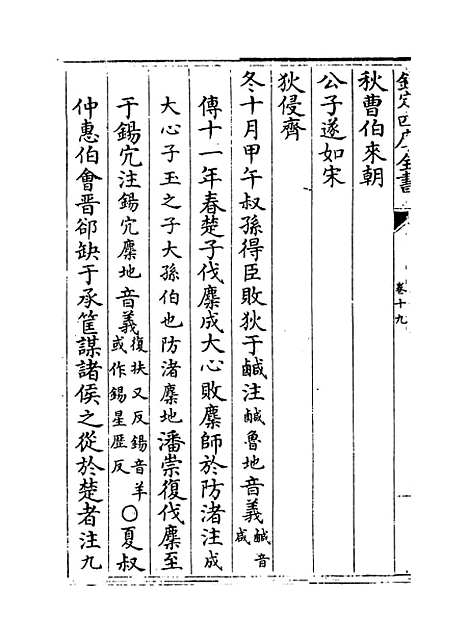 欽定四庫全書
卷十九
秋曹伯來朝
公子遂如宋
狄侵齊
冬十月甲午叔孫得臣敗狄于鹹注鹹魯地音義鹹音咸
傳十一年春楚子伐麇成大心敗麇師於防渚注成
大心子玉之子大孫伯也防渚麇地潘崇復伐麇至
于錫穴注錫穴麇地音義復扶又反錫音羊或作錫星歷反○夏叔
仲惠伯會晋郤缺于承筐謀諸侯之從於楚者注九